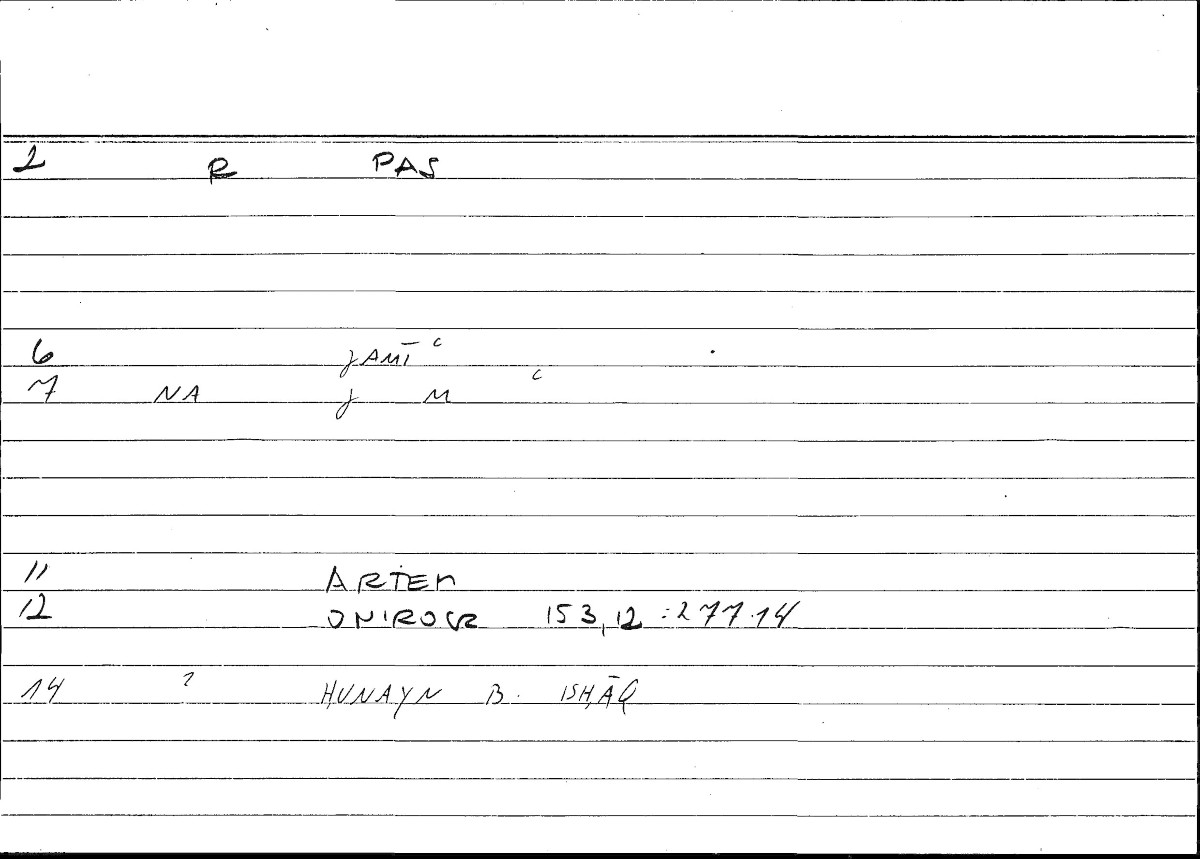 2 R PAS
6 ǧAMĪʿ
7 NA ǧ M ʿ
11 ARTEM
12 ONIROCR 153,12 : 277.14
14 ? ḤUNAYN B. ISḤĀQ